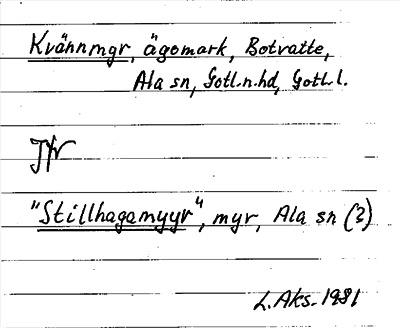 Kvännmyr, ägomark, Botvatte,
Ala sn, Gotl.n.hd, Gotl.l.
Jfr
"Stillhagamyyr", myr, Ala sn (?)
L. Aks. 1981